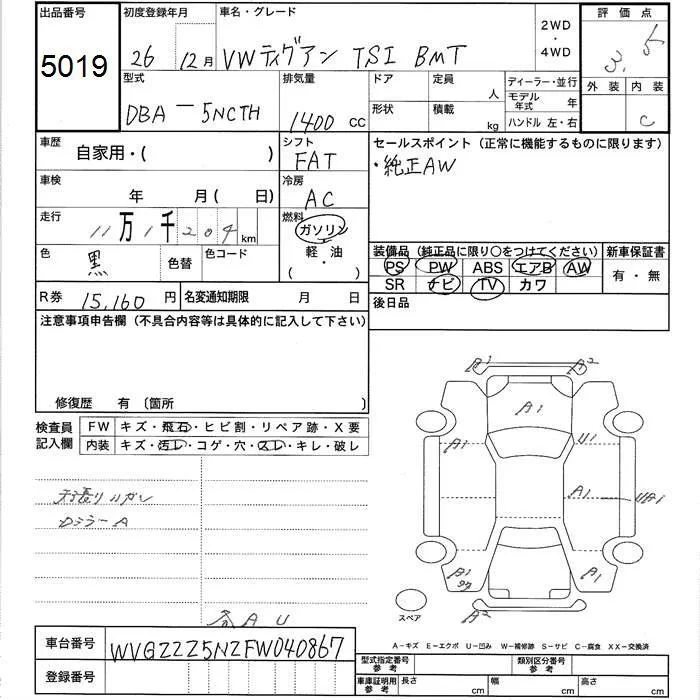 出品番号 初度登録年月 車名・グレード 2WD・4WD 評価点
5019 26 12月 VWティグアン TSI BMT 3.5
型式 排気量 ドア 定員 人 ディーラー・並行 外装 内装
DBA-5NCTH 1400 CC 形状 積載 kg モデル年式 年 C
ハンドル 左・右
車歴 自家用・( ) シフト FAT セールスポイント(正常に機能するものに限ります)
・純正AW
車検 年 月( 日) 冷房 AC
走行 11万1千204km 燃料 ガソリン
色 黒 色替 色コード 軽・油
( ・ )
装備品(純正品に限り〇をつけてください) 新車保証書
PS PW ABS エアB AW 有・無
SR ナビ TV カワ
R券 15,160円 名変通知期限 月 日 後日品
注意事項申告欄(不具合内容等は具体的に記入して下さい)
修復歴 有〔箇所 〕
検査員記入欄 FW キズ・飛石・ヒビ割・リペア跡・X要
内装 キズ・汚レ・コゲ・穴・スレ・キレ・破レ
天張りハガレ
カラーA
各AU
A1 A2
A1
A1 U1
A1
A1 A1
A2
スペア
A-キズ E-エクボ U-凹み W-補修跡 S-サビ C-腐食 XX-交換済
車台番号 WVGZZZ5NZFW040867
登録番号
型式指定番号参考 類別区分番号参考
車庫証明用参考 長さ cm 幅 cm 高さ cm